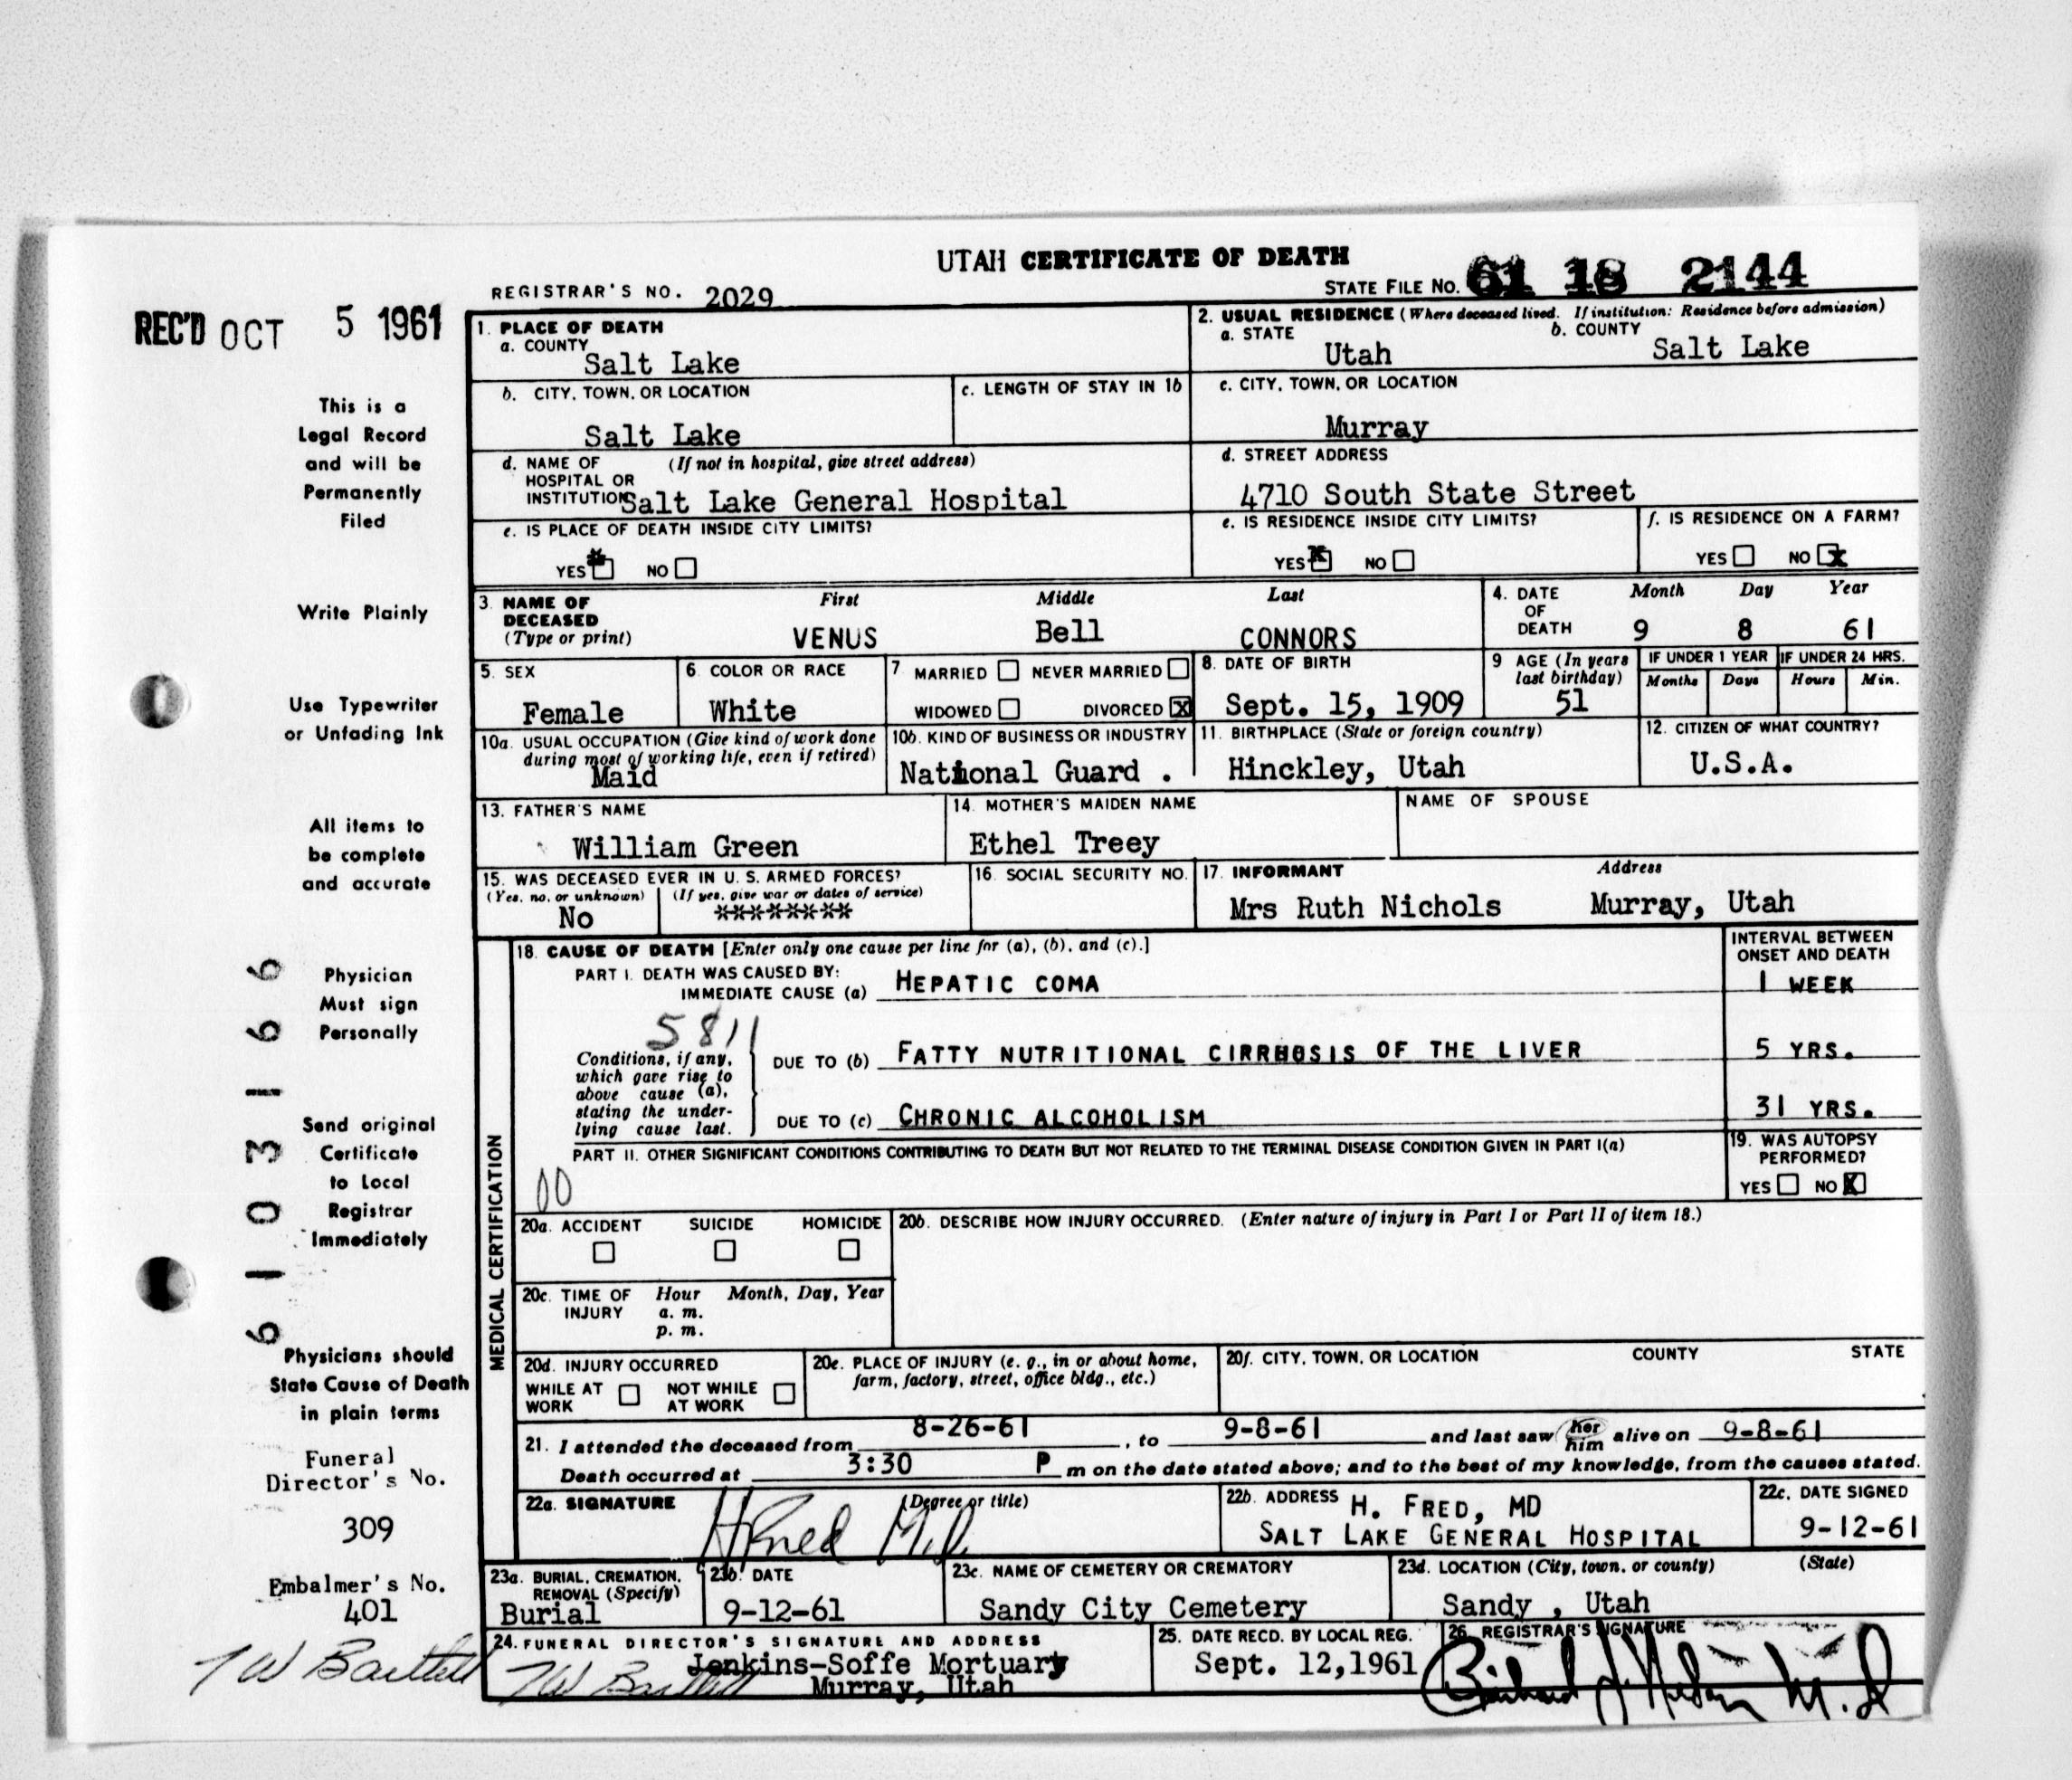 UTAH CERTIFICATE OF DEATH
REGISTRAR'S NO. 2029
STATE FILE NO. 61 18 2144
REC'D OCT 5 1961
This is a
Legal Record
and will be
Permanently
Filed
Write Plainly
Use Typewriter
or Unfading Ink
All items to
be complete
and accurate
Physician
Must sign
Personally
Send original
Certificate
to Local
Registrar
Immediately
Physicians should
State Cause of Death
in plain terms
Funeral
Director's No.
309
Embalmer's No.
401
T W Bartlett
6103166
1. PLACE OF DEATH
a. COUNTY
Salt Lake
2. USUAL RESIDENCE (Where deceased lived. If institution: Residence before admission)
a. STATE b. COUNTY
Utah Salt Lake
b. CITY, TOWN, OR LOCATION
Salt Lake
c. LENGTH OF STAY IN 1b
c. CITY, TOWN, OR LOCATION
Murray
d. NAME OF (If not in hospital, give street address)
HOSPITAL OR
INSTITUTION Salt Lake General Hospital
d. STREET ADDRESS
4710 South State Street
e. IS PLACE OF DEATH INSIDE CITY LIMITS?
YES NO
e. IS RESIDENCE INSIDE CITY LIMITS?
YES X NO
f. IS RESIDENCE ON A FARM?
YES NO X
3. NAME OF DECEASED
(Type or print)
First Middle Last
VENUS Bell CONNORS
4. DATE OF DEATH
Month Day Year
9 8 61
5. SEX
Female
6. COLOR OR RACE
White
7. MARRIED NEVER MARRIED
WIDOWED DIVORCED X
8. DATE OF BIRTH
Sept. 15, 1909
9 AGE (In years
last birthday)
51
IF UNDER 1 YEAR
Months Days
IF UNDER 24 HRS.
Hours Min.
10a. USUAL OCCUPATION (Give kind of work done
during most of working life, even if retired)
Maid
10b. KIND OF BUSINESS OR INDUSTRY
National Guard .
11. BIRTHPLACE (State or foreign country)
Hinckley, Utah
12. CITIZEN OF WHAT COUNTRY?
U.S.A.
13. FATHER'S NAME
William Green
14. MOTHER'S MAIDEN NAME
Ethel Treey
NAME OF SPOUSE
15. WAS DECEASED EVER IN U. S. ARMED FORCES?
(Yes, no, or unknown) (If yes, give war or dates of service)
No ********
16. SOCIAL SECURITY NO.
17. INFORMANT Address
Mrs Ruth Nichols Murray, Utah
MEDICAL CERTIFICATION
18. CAUSE OF DEATH [Enter only one cause per line for (a), (b), and (c).]
INTERVAL BETWEEN
ONSET AND DEATH
PART I. DEATH WAS CAUSED BY:
IMMEDIATE CAUSE (a) HEPATIC COMA 1 WEEK
5811
Conditions, if any,
which gave rise to
above cause (a),
stating the under-
lying cause last.
DUE TO (b) FATTY NUTRITIONAL CIRRHOSIS OF THE LIVER 5 YRS.
DUE TO (c) CHRONIC ALCOHOLISM 31 YRS.
PART II. OTHER SIGNIFICANT CONDITIONS CONTRIBUTING TO DEATH BUT NOT RELATED TO THE TERMINAL DISEASE CONDITION GIVEN IN PART I(a)
00
19. WAS AUTOPSY
PERFORMED?
YES NO X
20a. ACCIDENT SUICIDE HOMICIDE
20b. DESCRIBE HOW INJURY OCCURRED. (Enter nature of injury in Part I or Part II of item 18.)
20c. TIME OF INJURY Hour Month, Day, Year
a. m.
p. m.
20d. INJURY OCCURRED
WHILE AT WORK NOT WHILE AT WORK
20e. PLACE OF INJURY (e. g., in or about home,
farm, factory, street, office bldg., etc.)
20f. CITY, TOWN, OR LOCATION COUNTY STATE
21. I attended the deceased from 8-26-61, to 9-8-61 and last saw her him alive on 9-8-61
Death occurred at 3:30 P m on the date stated above; and to the best of my knowledge, from the causes stated.
22a. SIGNATURE (Degree or title)
H Fred M.D.
22b. ADDRESS H. FRED, MD
SALT LAKE GENERAL HOSPITAL
22c. DATE SIGNED
9-12-61
23a. BURIAL, CREMATION,
REMOVAL (Specify)
Burial
23b. DATE
9-12-61
23c. NAME OF CEMETERY OR CREMATORY
Sandy City Cemetery
23d. LOCATION (City, town, or county) (State)
Sandy , Utah
24. FUNERAL DIRECTOR'S SIGNATURE AND ADDRESS
Jenkins-Soffe Mortuary
T W Bartlett Murray, Utah
25. DATE RECD. BY LOCAL REG.
Sept. 12,1961
26. REGISTRAR'S SIGNATURE
M.D